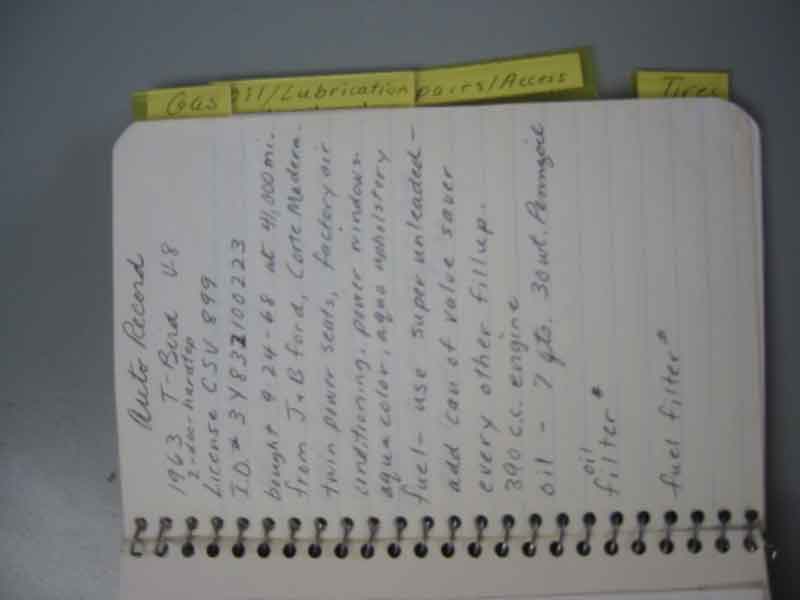 Gas
Oil/Lubrication
pairs/Access
Tires
Auto Record
1963 T-Bird V.8
2-door-hardtop
License CSV 899
I.D.# 3Y83Z100223
bought 9-24-68 at 41,000 mi.
from J&B ford, Corte Madera.
twin power seats, factory air
conditioning, power windows.
aqua color, aqua upholstery
fuel- use super unleaded-
add can of value saver
every other fillup.
390 c.c. engine
oil - 7 qts. 30 wt. Pennzoil
oil
filter*
fuel filter*